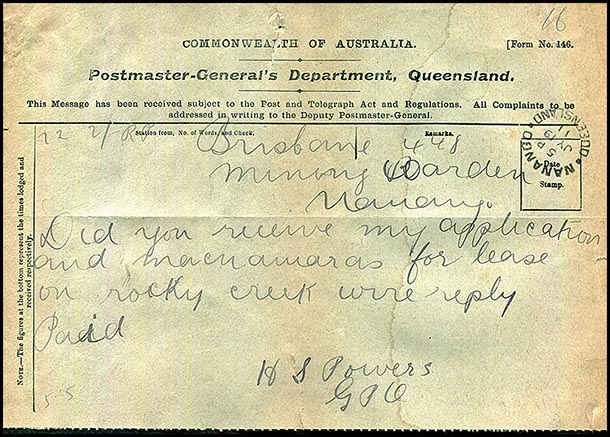 16
COMMONWEALTH OF AUSTRALIA.
[Form No. 146.
Postmaster-General's Department, Queensland.
This Message has been received subject to the Post and Telegraph Act and Regulations. All Complaints to be
addressed in writing to the Deputy Postmaster-General.
22 2/- RP
Station from, No. of Words, and Check.
Remarks.
Brisbane 448
Mining Warden
Nanango.
NANANGO QUEENSLAND
Date
Stamp.
Did you receive my application
and macnamaras for lease
on rocky creek wire reply
Paid
H S Powers
GPO
5-5
NOTE.—The figures at the bottom represent the times lodged and
received respectively.